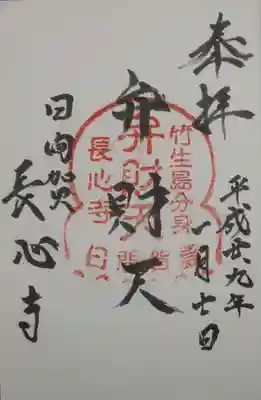 奉拝
平成廿九年
一月七日
弁財天
日間賀
長心寺
竹生島分身
弁財天
長心寺